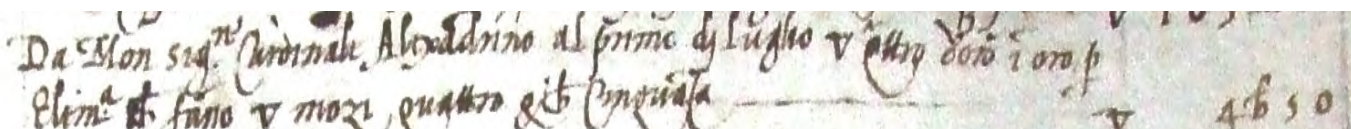 Da Mon sig.re Cardinale Alexadrino al primo dj luglio v quattro doro i oro p
Elim.a fano v mozi, quattro e b. Cinquãta v 4 b 50